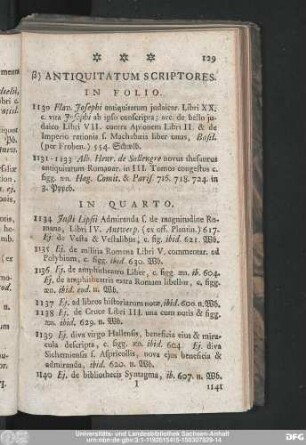 * * * 129
β) ANTIQUITATUM SCRIPTORES.
IN FOLIO.
1130 Flav. Josephi antiquitatum judaicar. Libri XX,
c. vita Josephi ab ipso conscripta; acc. de bello ju-
daico Libri VII. contra Apionem Libri II. & de
Imperio rationis s. Machabæis liber unus, Basil.
(per Froben.) 554. Schwlb.
1131-1133 Alb. Henr. de Sallengre novus thesaurus
antiquitatum Romanar. in III. Tomos congestus c.
figg. æn. Hag. Comit. & Paris. 716. 718. 724. in
3. Pppeb.
IN QUARTO.
1134 Justi Lipsii Admiranda s. de magnitudine Ro-
mana, Libri IV. Antwerp. (ex off. Plantin.) 617.
Ej. de Vesta & Vestalibus, c. fig. ibid. 621. Wb.
1135 Ej. de militia Romana Libri V. commentar. ad
Polybium, c. figg. ibid. 630. Wb.
1136 Ej. de amphitheatro Liber, c. figg. æn. ib. 604.
Ej. de amphitheatris extra Romam libellus, c. figg.
æn. ibid. eod. n. Wb.
1137 Ej. ad libros historiarum notæ, ibid. 600. n. Wb.
1138 Ej. de Cruce Libri III. una cum notis & figg.
æn. ibid. 629. n. Wb.
1139 Ej. diva virgo Hallensis, beneficia eius & mira-
cula descripta, c. figg. æn. ibid. 604. Ej. diva
Sichemiensis s. Aspricollis, nova ejus beneficia &
admiranda, ibid. 620. n. Wb.
1140 Ej. de bibliothecis Syntagma, ib. 607. n. Wb.
I 1141
Universitäts- und Landesbibliothek Sachsen-Anhalt